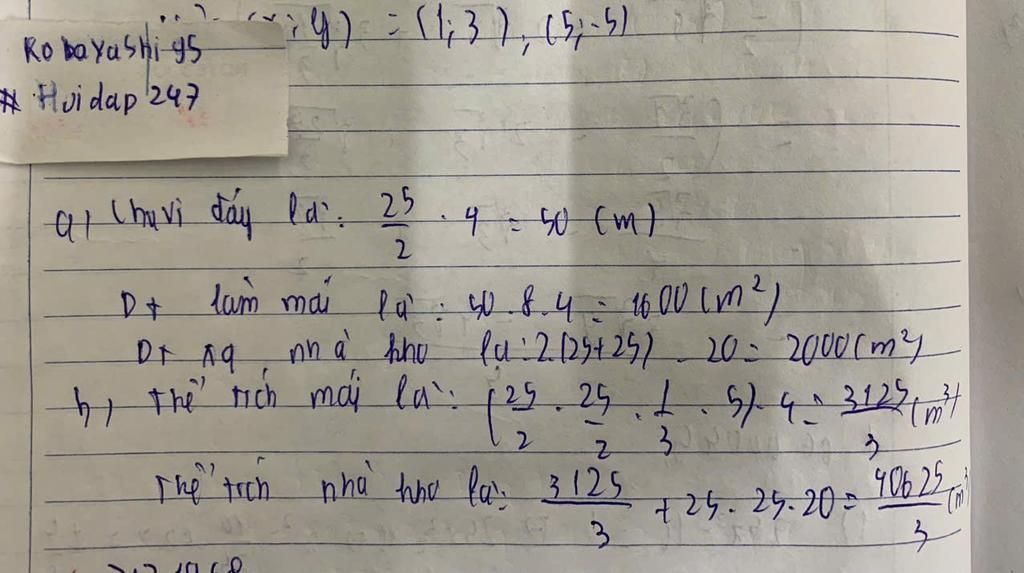 y) = (1; 3), (5; -5)
Kobayashi 95
# Hoidap 247
a, Chu vi đáy là: 25/2 . 4 = 50 (m)
Dt làm mái là: 50 . 8 . 4 = 1600 (m²)
Dt xq nhà kho là: 2.(25+25) . 20 = 2000 (m²)
b, Thể tích mái là: (25/2 . 25/2 . 1/3 . 5) . 4 = 3125/3 (m³)
Thể tích nhà kho là: 3125/3 + 25 . 25 . 20 = 40625/3 (m³